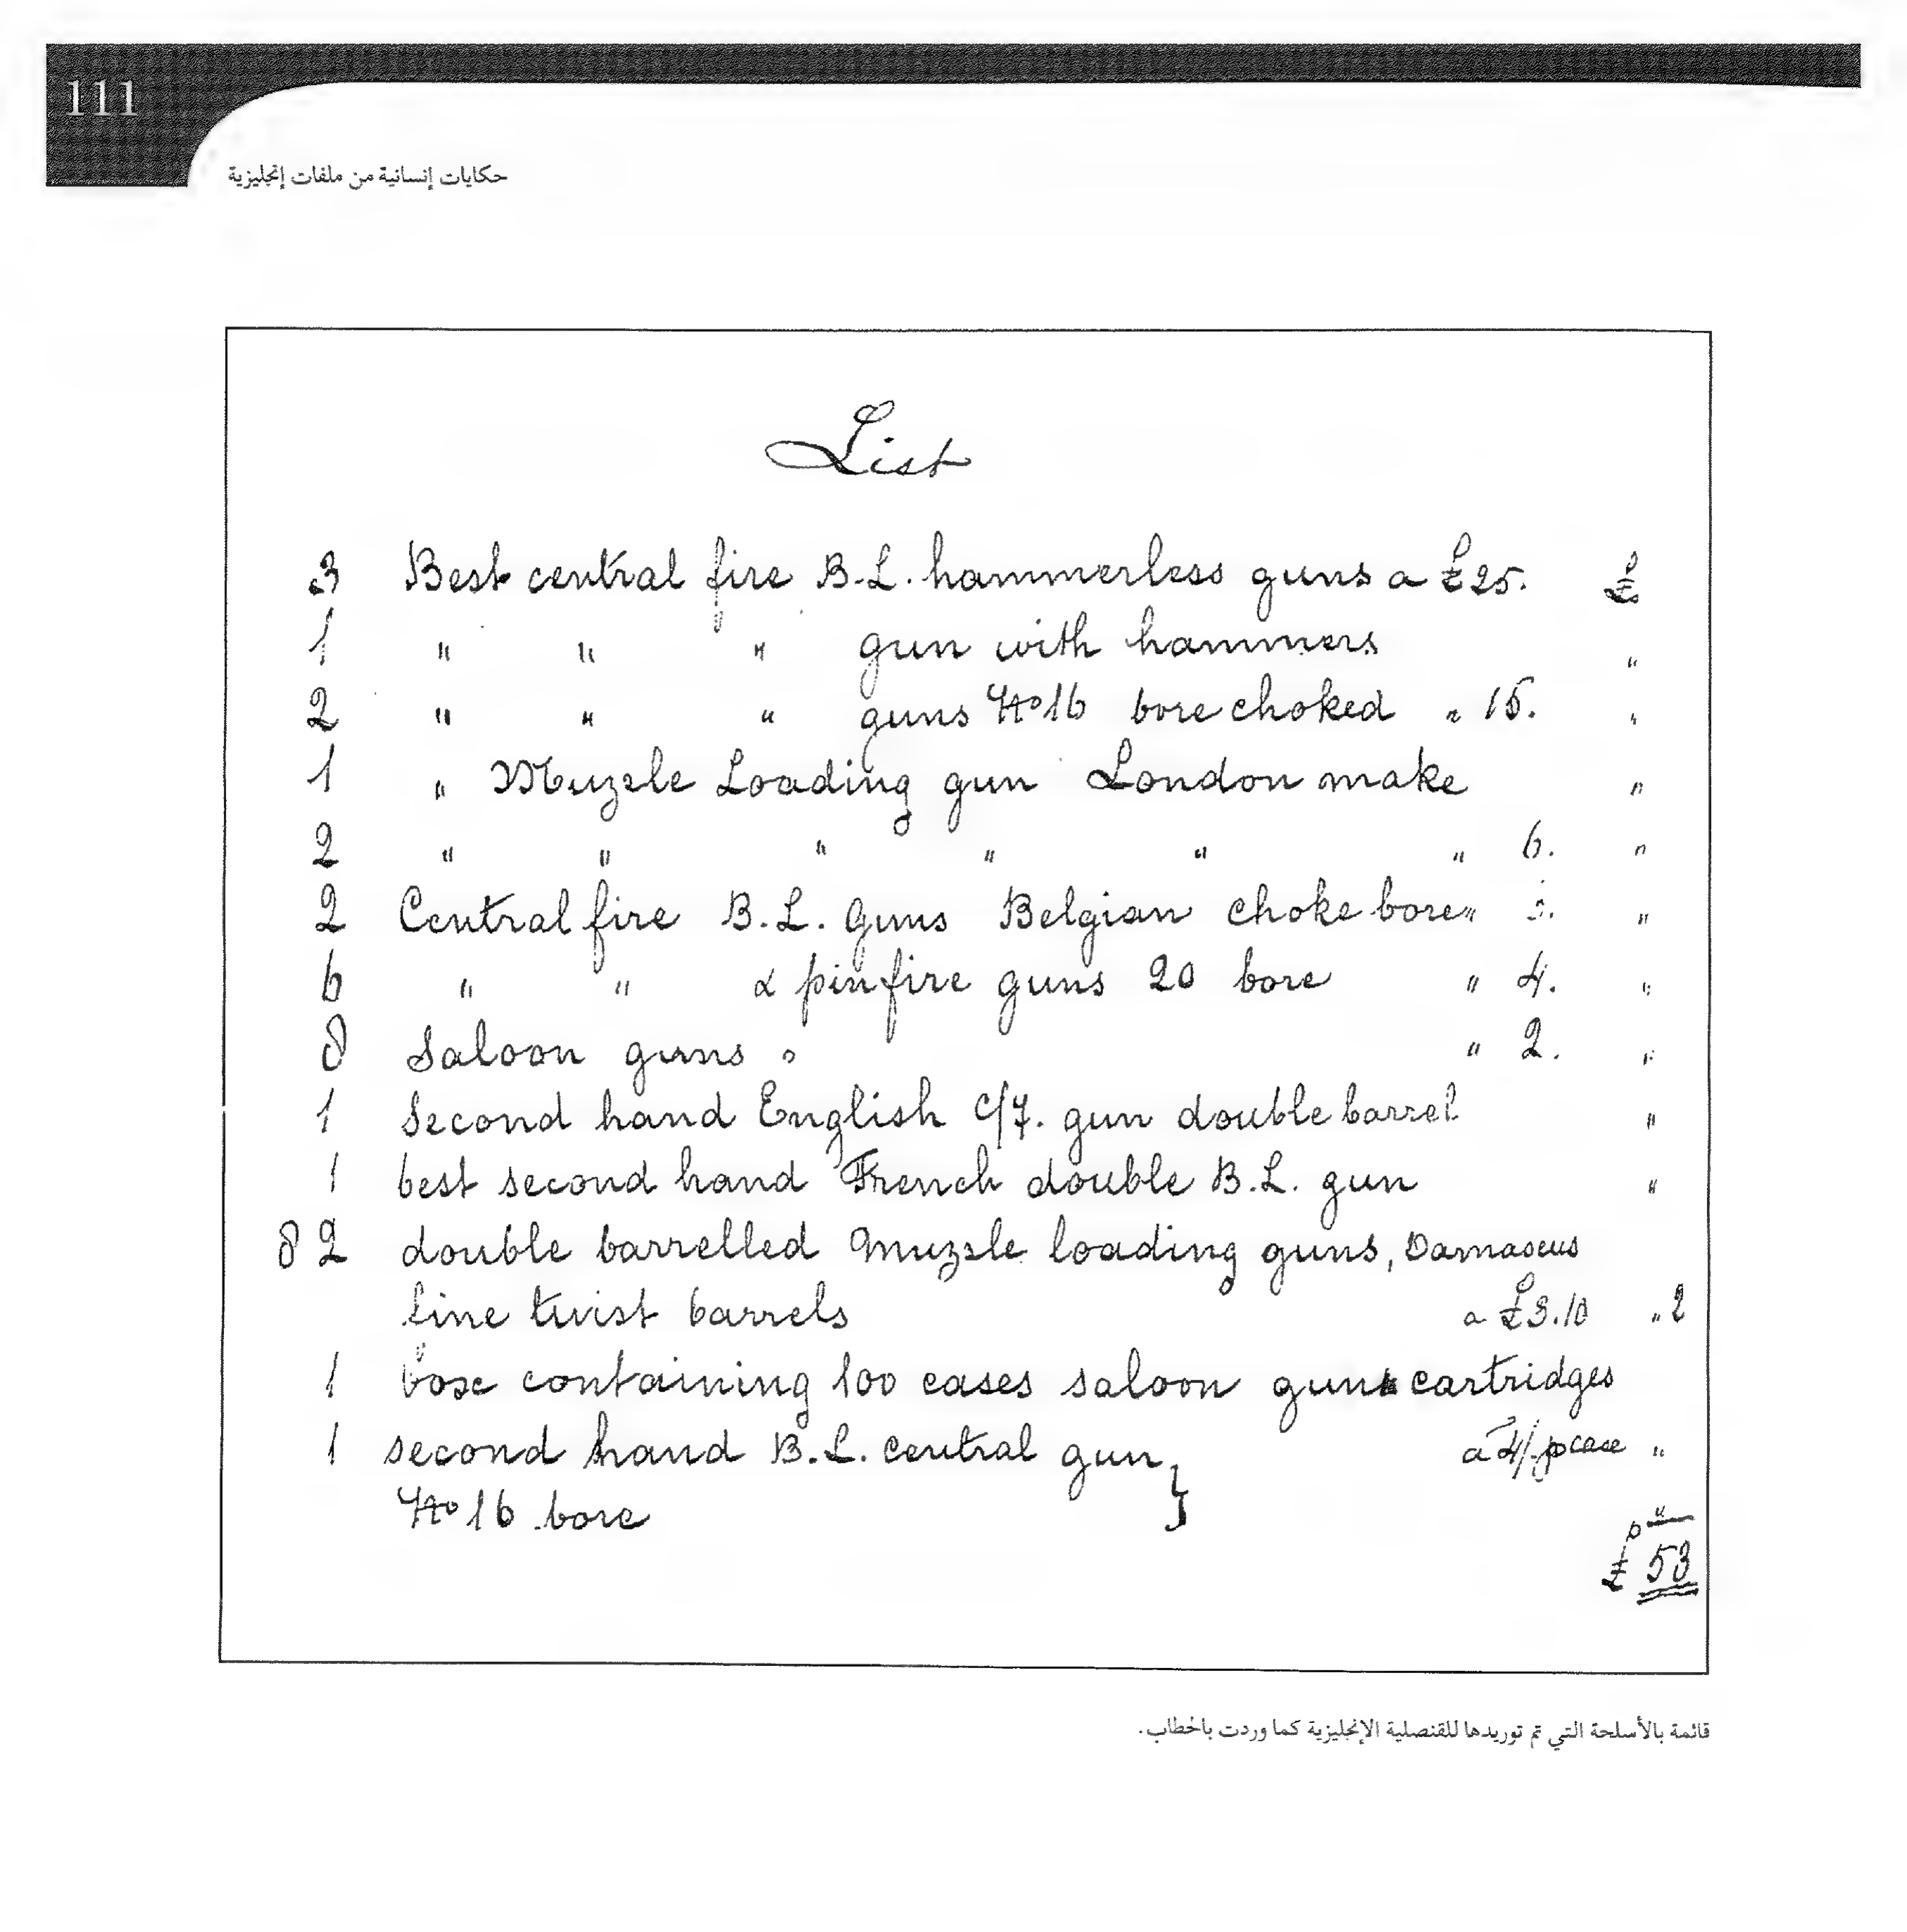 111
حكايات إنسانية من ملفات إنجليزية
List
3 Best central fire B.L. hammerless guns a £25. £
1 " " " gun with hammers "
2 " " " guns No 16 bore choked " 15. "
1 " Muzzle Loading gun London make "
2 " " " " " " 6. "
2 Central fire B.L. Guns Belgian choke bore " "
6 " " & pinfire guns 20 bore " 4. "
8 Saloon guns " 2. "
1 Second hand English C/F. gun double barrel "
1 best second hand French double B.L. gun "
8 2 double barrelled muzzle loading guns, Damascus
fine twist barrels a £3.10 " 2
1 box containing 100 cases saloon guns cartridges
1 second hand B.L. central gun } a 4/- p case "
No 16 bore "
£ 53
قائمة بالأسلحة التي تم توريدها للقنصلية الإنجليزية كما وردت بالخطاب.